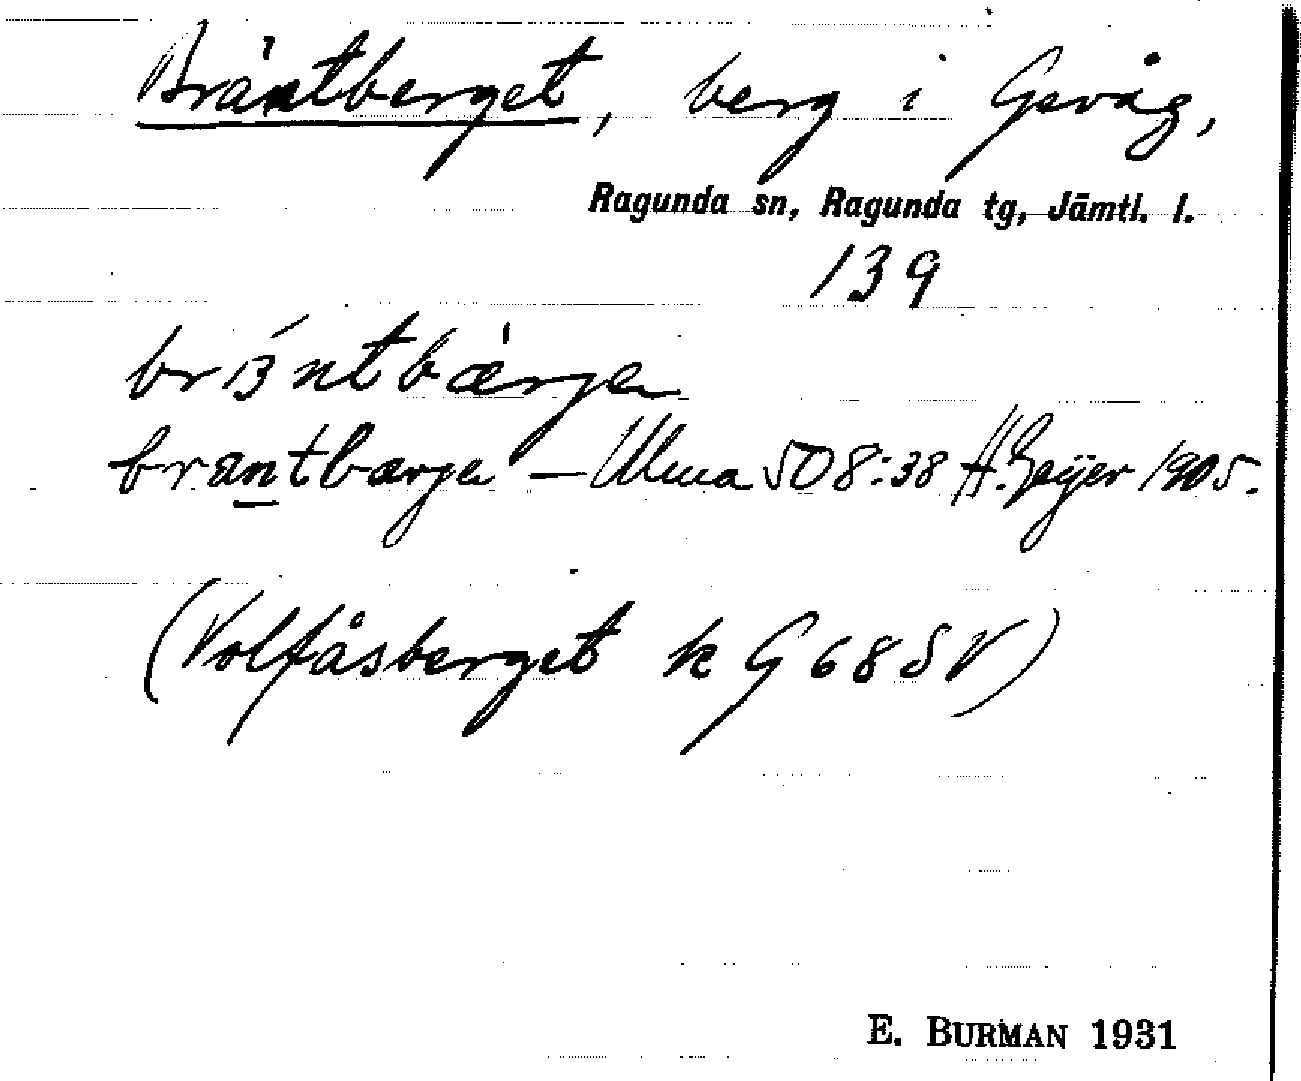 Bräntberget, berg i Gevåg,
Ragunda sn, Ragunda tg, Jämtl. l.
139
bräntbærje
brantbærje – Ulma 508:38 H. Geijer 1905.
(Volfåsberget k G 68 SV)
E. BURMAN 1931